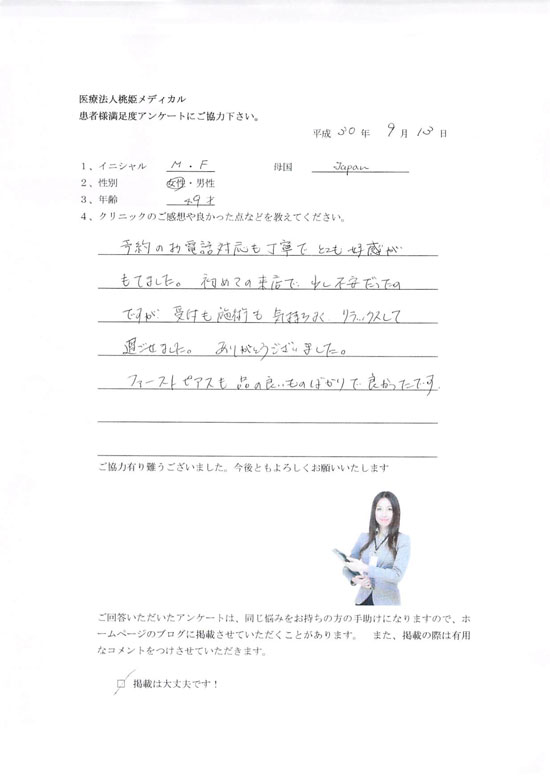 医療法人桃姫メディカル
患者様満足度アンケートにご協力下さい。
平成 30 年 9 月 13 日
1、イニシャル M・F 母国 Japan
2、性別 女性・男性
3、年齢 49才
4、クリニックのご感想や良かった点などを教えてください。
予約のお電話対応も丁寧で とても好感が
もてました。 初めての来店で 少し不安だったの
ですが 受付も施術も 気持ちよく リラックスして
過ごせました。 ありがとうございました。
ファーストピアスも 品の良いものばかりで良かったです。
ご協力有り難うございました。今後ともよろしくお願いいたします
ご回答いただいたアンケートは、同じ悩みをお持ちの方の手助けになりますので、ホ
ームページのブログに掲載させていただくことがあります。 また、掲載の際は有用
なコメントをつけさせていただきます。
□ 掲載は大丈夫です！